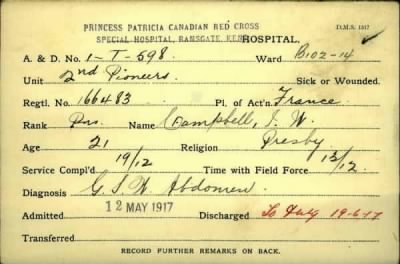 PRINCESS PATRICIA CANADIAN RED CROSS
SPECIAL HOSPITAL, RAMSGATE, KENT. HOSPITAL.
D.M.S. 1317
A. & D. No. 1-T-598 Ward B102-14
Unit 2nd Pioneers. Sick or Wounded.
Regtl. No. 166483 Pl. of Act'n. France
Rank Pns. Name Campbell, J. W.
Age 21 Religion Presby
Service Compl'd 19/12 Time with Field Force 13/12
Diagnosis G.S.W. Abdomen
Admitted 12 MAY 1917 Discharged To duty 19-6-17
Transferred
RECORD FURTHER REMARKS ON BACK.